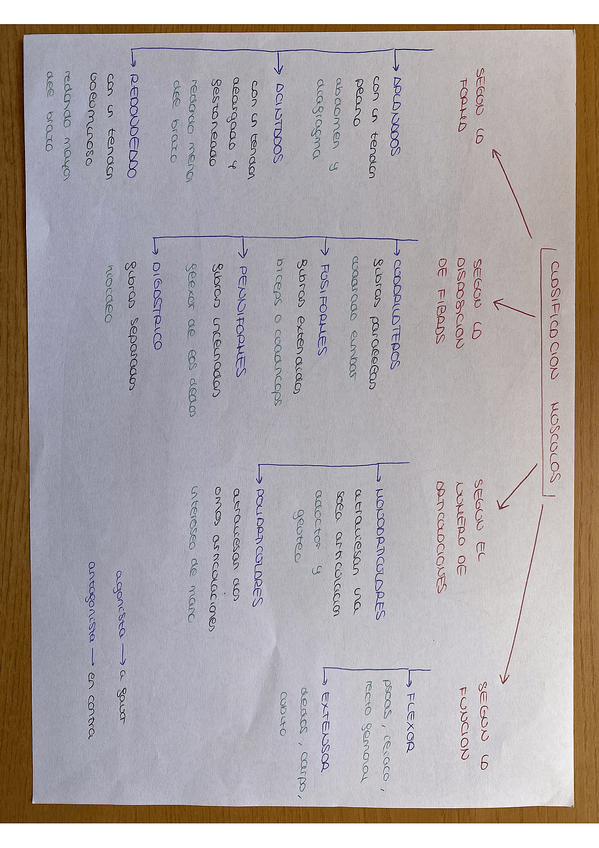 CLASIFICACION MUSCULOS
SEGUN LA
FORMA
APLANADOS
con un tendon
plano
abdomen y
diafragma
ACINTADOS
con un tendon
alargado y
redondo menor
del brazo
REDONDEADO
con un tendon
voluminoso
redondo mayor
del brazo
SEGUN LA
DISPOSICION
DE FIBRAS
CUADRILATEROS
fibras paralelas
cuadrado lumbar
FUSIFORMES
fibras extendidas
biceps o cuadriceps
PENNIFORMES
fibras inclinadas
flexor de los dedos
DIGASTRICO
fibras separadas
SEGUN EL
NUMERO DE
ARTICULACIONES
MONOARTICULARES
atraviesan una
sola articulacion
aductor y
gluteo
POLIARTICULARES
atraviesan dos
o mas articulaciones
interoseo de mano
SEGUN LA
FUNCION
FLEXOR
psoas, iliaco,
recto femoral
EXTENSOR
dedos, carpo,
cubito
agonista → a favor
antagonista → en contra